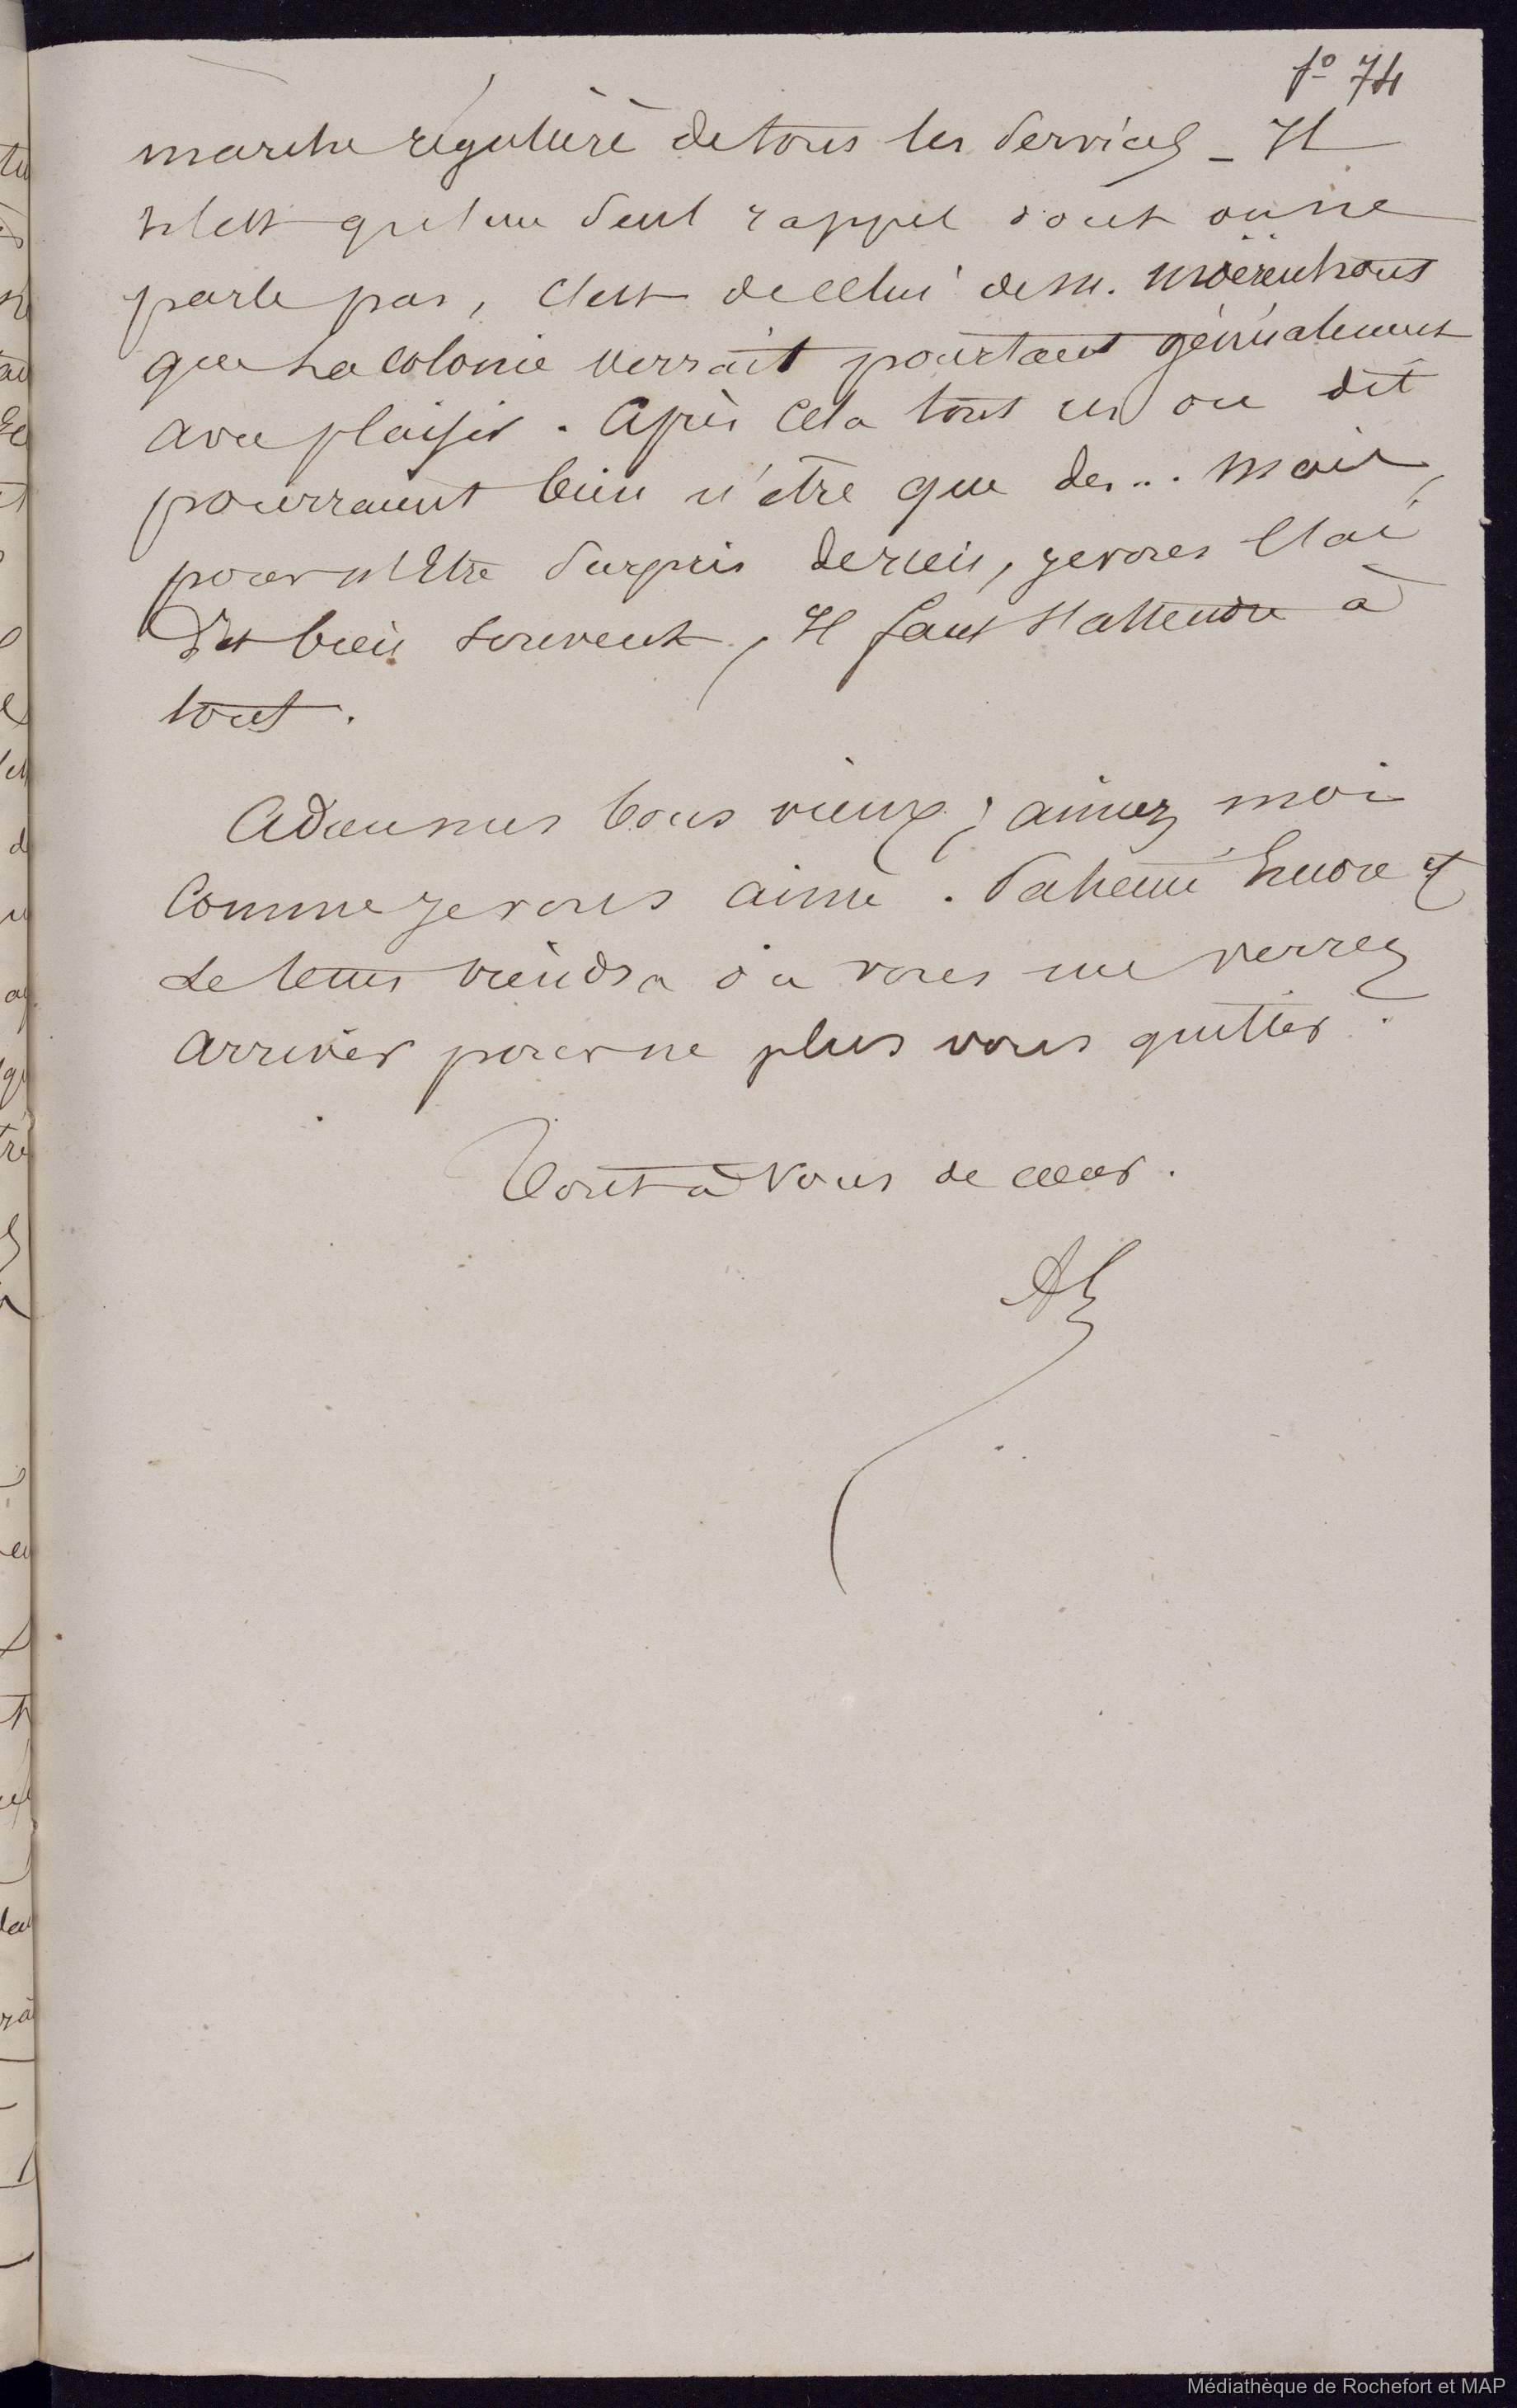 fº 74
marche régulière de tous les services _ Il
n'est qu'un seul rappel dont on ne
parle pas, c'est de celui de M.
que la colonie verrait pourtant généralement
avec plaisir. Après cela tous ces on dit
pourraient bien n'être que des... mais,
pour n'être surpris de rien, je vous l'ai
dit bien souvent, Il faut s'attendre à
tout.
Adieu mes bons vieux; aimez moi
comme je vous aime. Patience encore &
le temps viendra où vous me verrez
arriver pour ne plus vous quitter.
Tout à vous de cœur.
Médiathèque de Rochefort et MAP